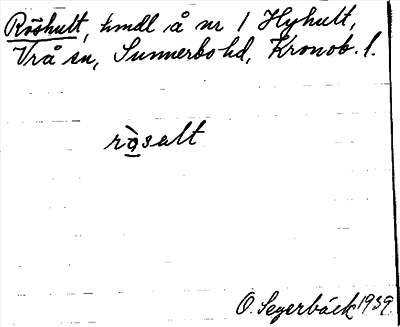 Röshult, hmdl å nr 1 Hyhult,
Vrå sn, Sunnerbo hd, Kronob. l.
ròsalt
O. Segerbäck 1939